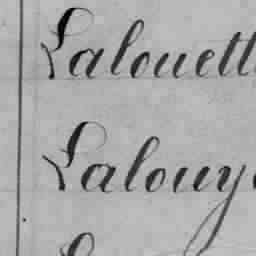 Lalouett
Lalouy